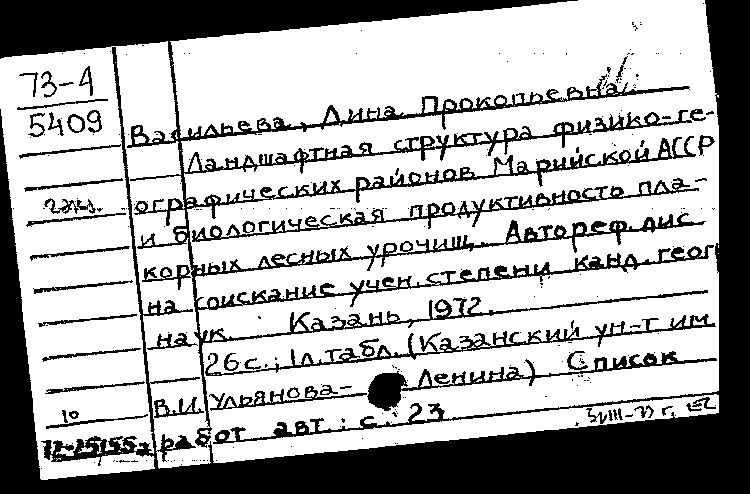 73-4
5409
Васильева, Дина Прокопьевна.
Ландшафтная структура физико-ге-
ографических районов Марийской АССР
2 экз.
и биологическая продуктивность пла-
корных лесных урочищ. Автореф. дис
на соискание учен. степени канд. геог
наук. Казань, 1972.
26 с.; 1 л. табл. (Казанский ун-т им
В.И. Ульянова-Ленина) Список
10
работ авт.: с. 23
72-25155а